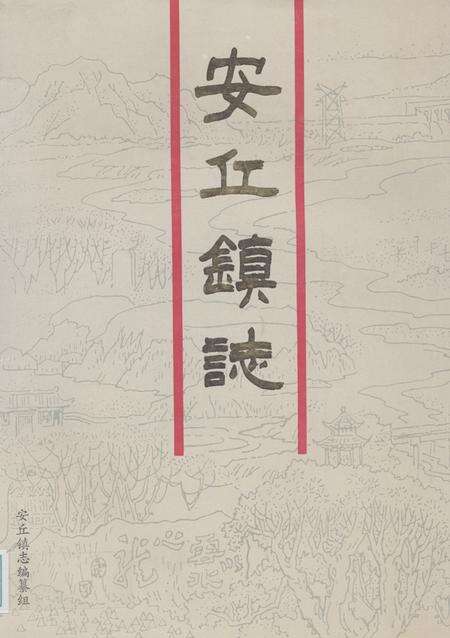 安丘鎮誌
安丘镇志编纂组